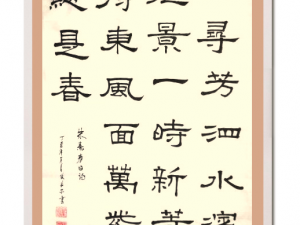 尋芳泗水濱
光景一時新等
得東風面萬紫
總是春
朱熹春日詩